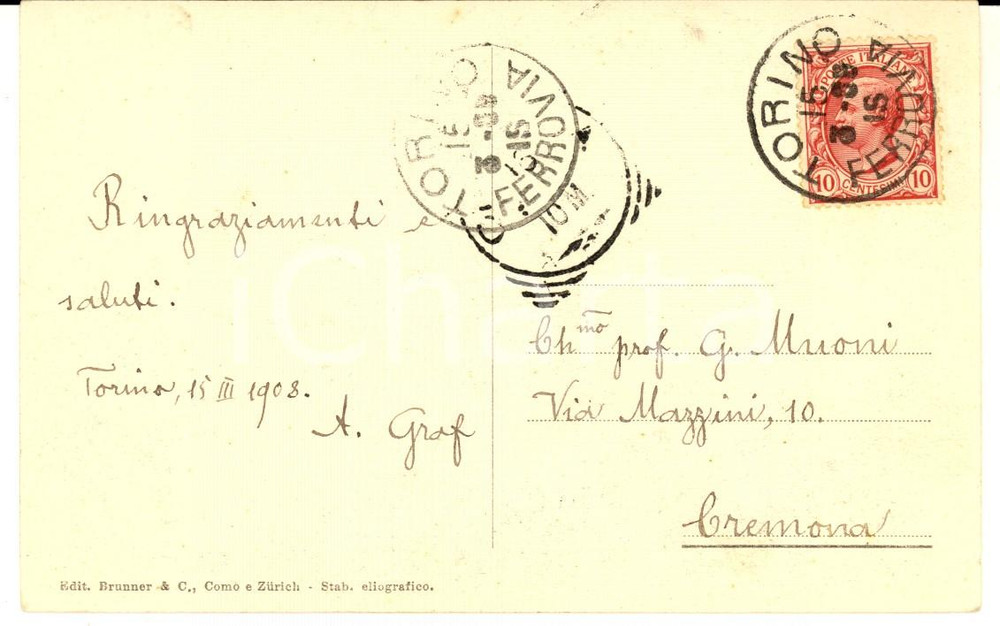 TORINO
FERROVIA
15
3-08
15
TORINO
FERROVIA
15
3-08
15
10 M
POSTE ITALIANE
10 CENTESIMI 10
Ringraziamenti e
saluti.
Torino, 15 III 1908.
A. Graf
Ch.mo prof. G. Muoni
Via Mazzini, 10.
Cremona
Edit. Brunner & C., Como e Zürich - Stab. eliografico.
iCharta